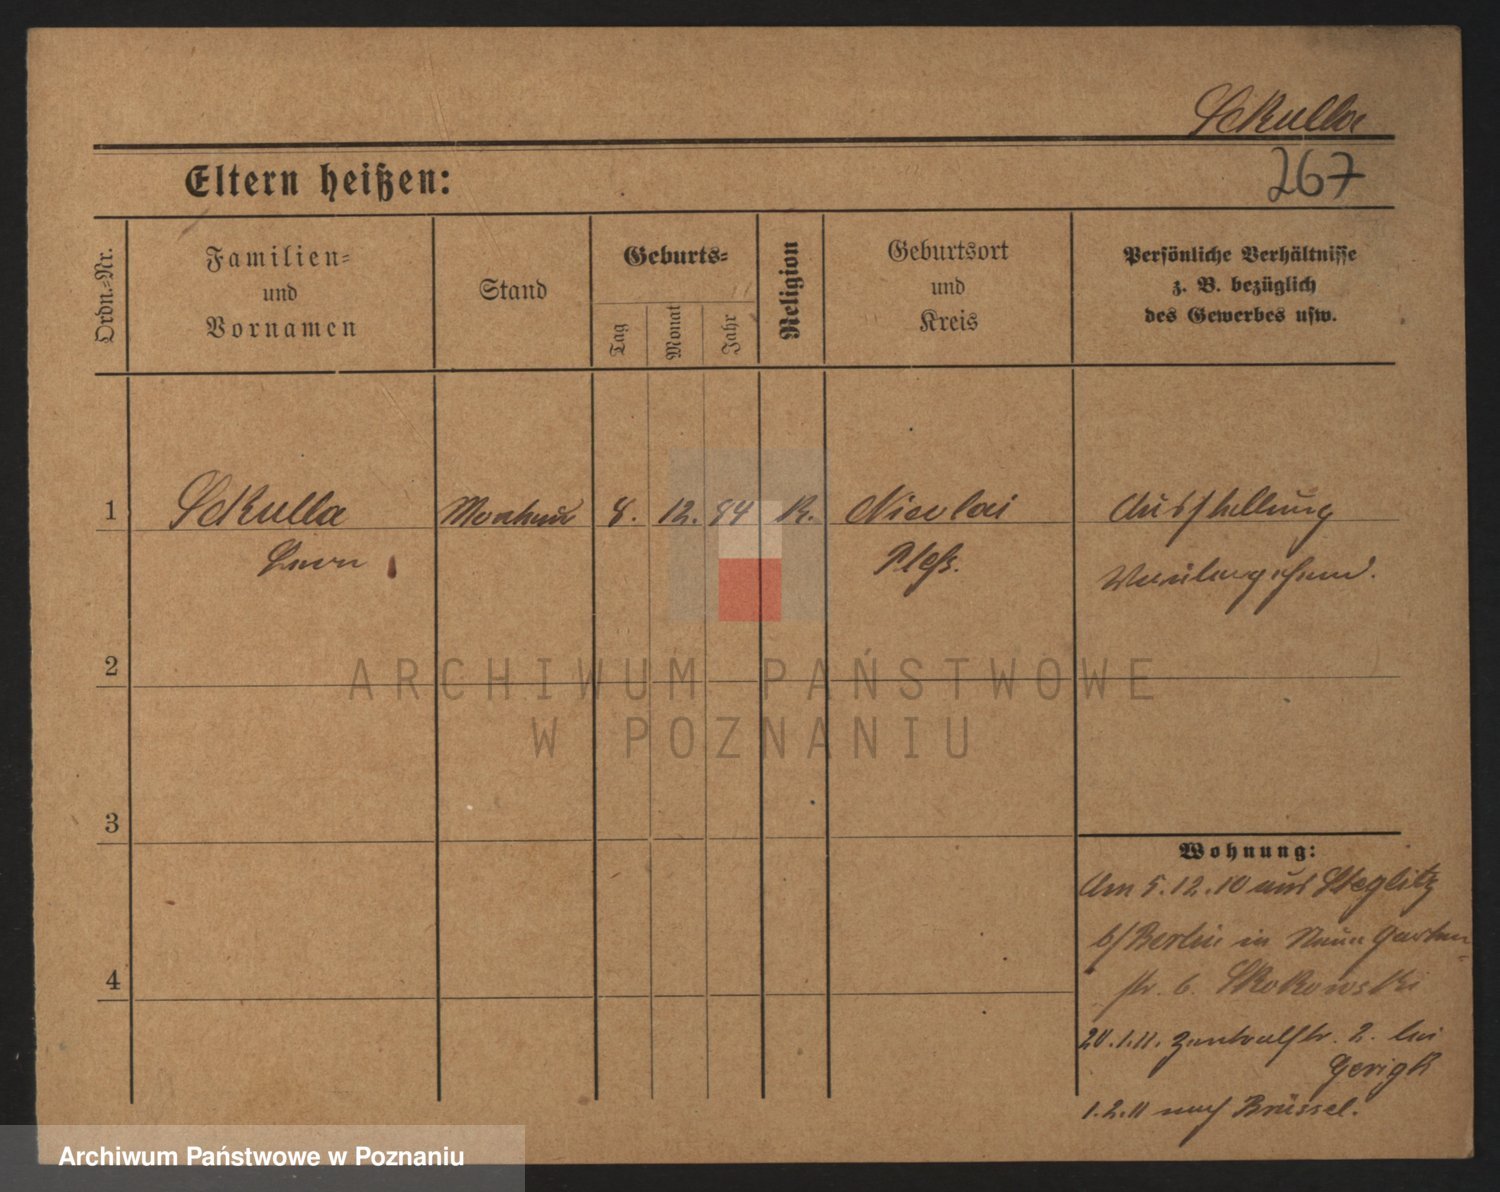 Sckulla
267
Eltern heißen:
Ordn.-Nr.
Familien-
und
Vornamen
Stand
Geburts-
Tag
Monat
Jahr
Religion
Geburtsort
und
Kreis
Persönliche Verhältnisse
z. B. bezüglich
des Gewerbes usw.
1 Sckulla 8. 12. 84 K. Nicolai Ausstellung
Pleß. Vorübergehend.
2
3
4
Wohnung:
Am 5.12.10 aus Steglitz
b/Berlin in Neue Garten-
str. 6. Skokowski
20.1.11. Zentralstr. 2. bei
Gerigk
1.2.11 nach Brüssel.
ARCHIWUM PAŃSTWOWE
W POZNANIU
Archiwum Państwowe w Poznaniu